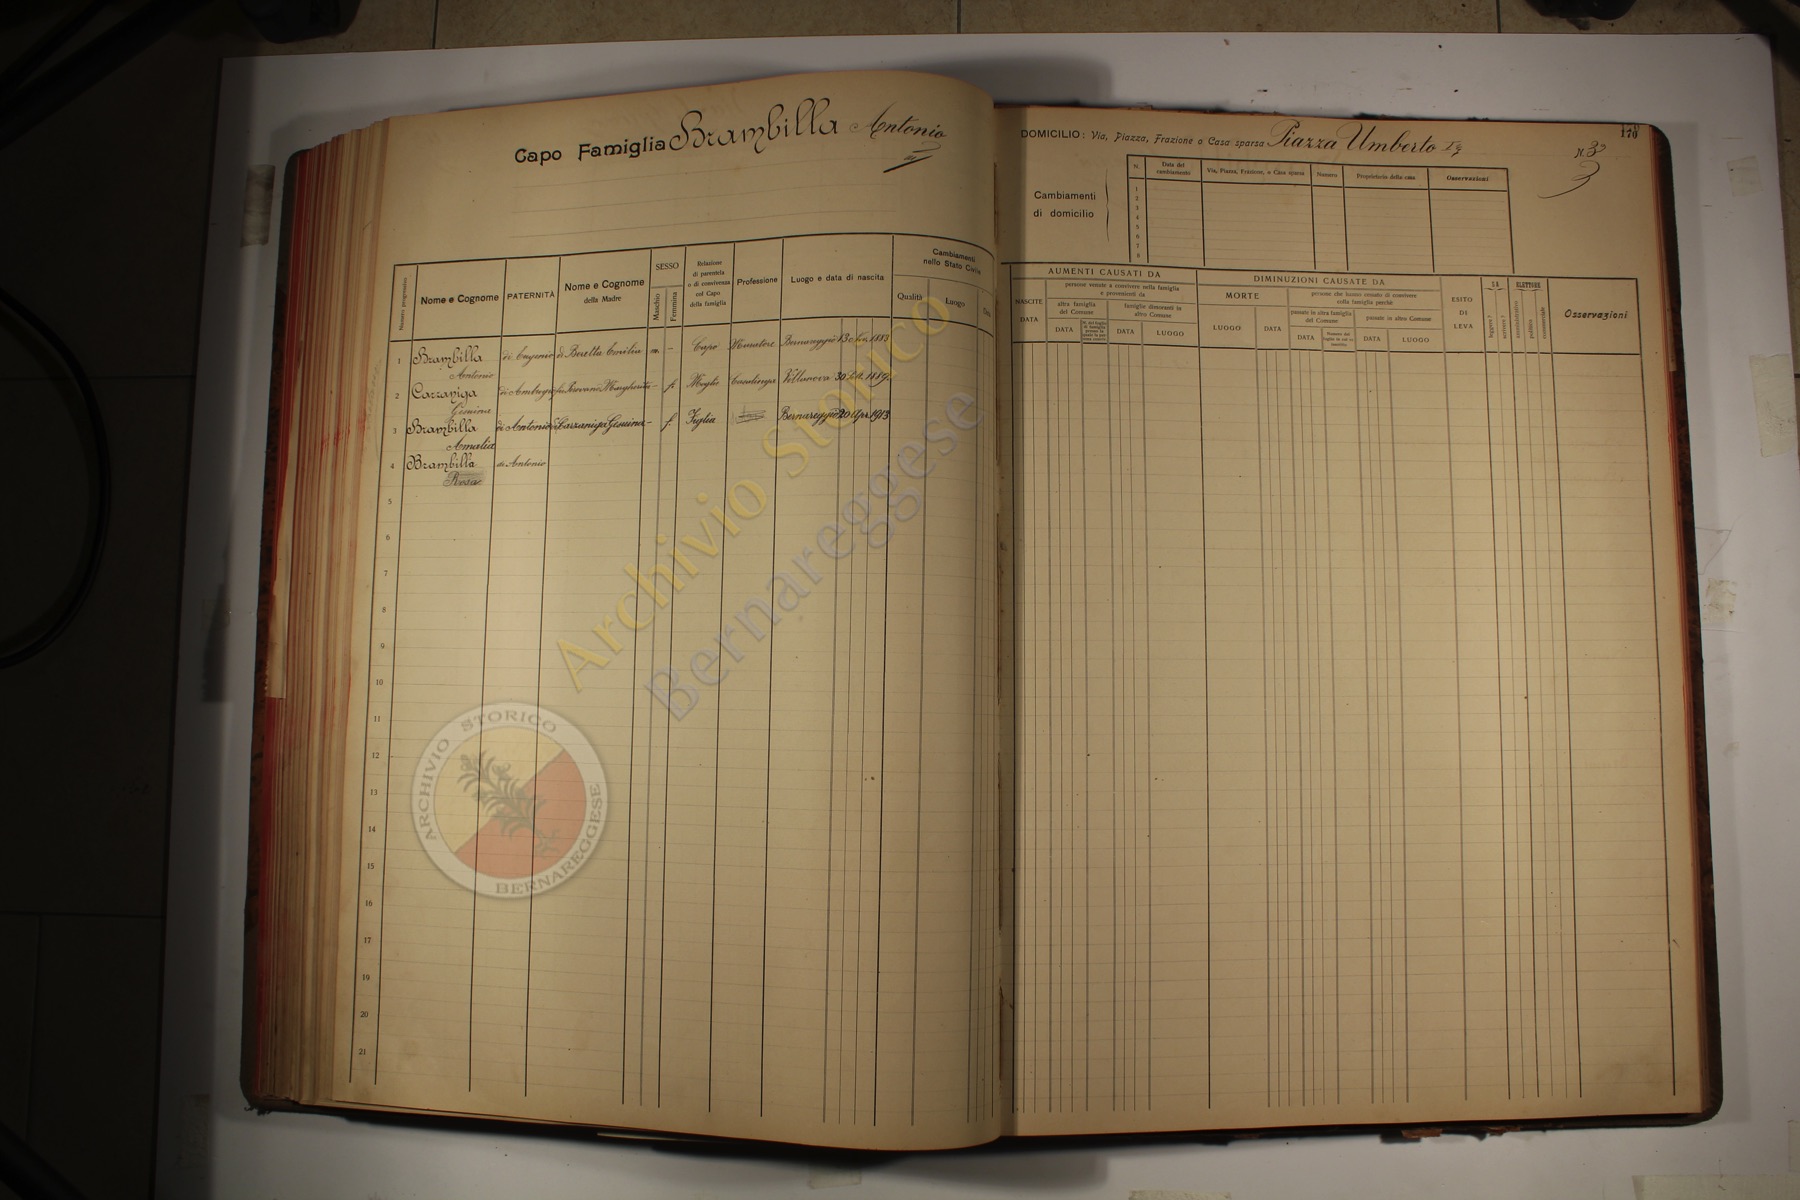 Capo Famiglia Brambilla Antonio
DOMICILIO: Via, Piazza, Frazione o Casa sparsa Piazza Umberto Iº N. 3
170
Cambiamenti
di domicilio
N. Data del cambiamento Via, Piazza, Frazione, o Casa sparsa Numero Proprietario della casa Osservazioni
1
2
3
4
5
6
7
8
Numero progressivo Nome e Cognome PATERNITÀ Nome e Cognome della Madre SESSO Maschio Femmina Relazione di parentela o di convivenza col Capo della famiglia Professione Luogo e data di nascita Cambiamenti nello Stato Civile Qualità Luogo Data
AUMENTI CAUSATI DA
NASCITE DATA
persone venute a convivere nella famiglia e provenienti da
altra famiglia del Comune DATA
famiglie dimoranti in altro Comune DATA LUOGO
DIMINUZIONI CAUSATE DA
MORTE LUOGO DATA
persone che hanno cessato di convivere colla famiglia perchè
passate in altra famiglia del Comune DATA
passate in altro Comune DATA LUOGO
ESITO DI LEVA
SA leggere? scrivere?
ELETTORE amministrativo politico commerciale
Osservazioni
1 Brambilla Antonio di Eugenio di Beretta Emilia m. – Capo Muratore Bernareggio 13 1883
2 Carzaniga Gesuina di Ambrogio Margherita – f. Moglie Casalinga Villanova 30 1889
3 Brambilla Amalia di Antonio di Carzaniga Gesuina – f. Figlia Bernareggio 20 Apr. 1913
4 Brambilla Rosa di Antonio
5
6
7
8
9
10
11
12
13
14
15
16
17
18
19
20
21
Archivio Storico
Bernareggese
ARCHIVIO STORICO
BERNAREGGESE